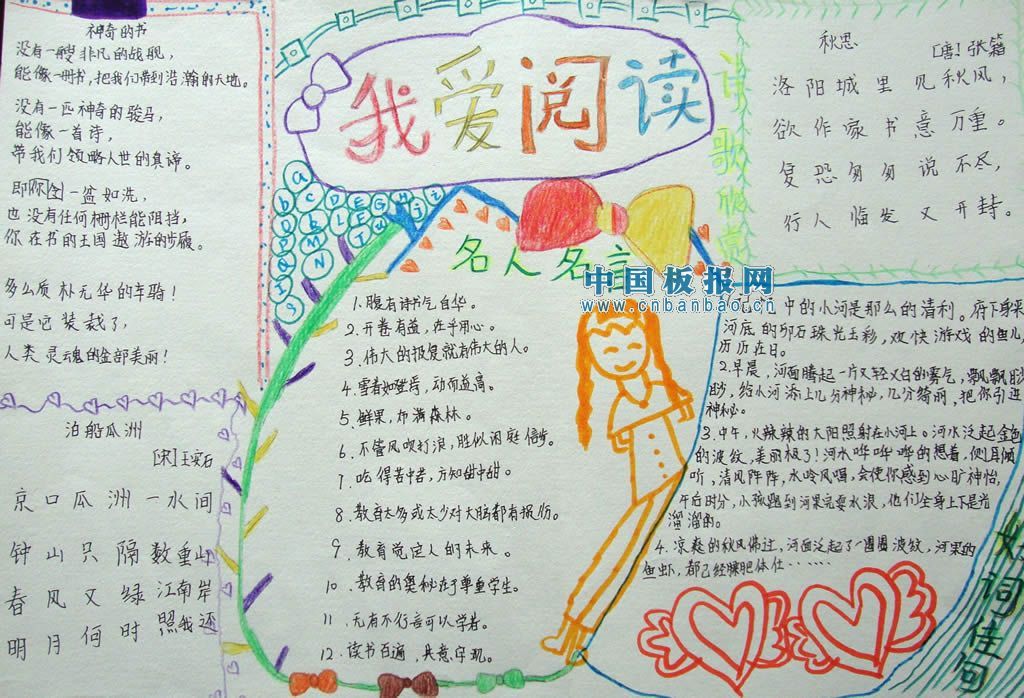 我爱阅读
神奇的书
没有一艘非凡的战舰，
能像一册书，把我们带到浩瀚的天地。
没有一匹神奇的骏马，
能像一首诗，
带我们领略人世的真谛。
即你一盆如洗，
也没有任何栅栏能阻挡，
你在书的王国遨游的步履。
多么质朴无华的车骑！
可是它装载了，
人类灵魂的全部美丽！
泊船瓜洲
[宋]王安石
京口瓜洲一水间
钟山只隔数重山
春风又绿江南岸
明月何时照我还
名人名言
1.腹有诗书气自华。
2.开卷有益，在乎用心。
3.伟大的报复就有伟大的人。
4.雪者如登俦，动而益高。
5.鲜果，布满森林。
6.不管风吹打浪，胜似闲庭信步。
7.吃得苦中者，方知甜中甜
8.教育太多或太少对大脑都有损伤。
9.教育觉定人的未来。
10.教育的奥秘在于尊重学生。
11.无有不行言可以学者。
12.读书百遍，其意字现。
诗歌欣赏
秋思
[唐]张籍
洛阳城里见秋风，
欲作家书意万重。
复恐匆匆说不尽，
行人临发又开封。
中国板报网
www.cnbanbao.cn
中的小河是那么的清利。府下身来
河底的卵石珠光玉彩，欢快游戏的鱼儿
历历在目。
2.早晨，河面腾起一片又轻又白的雾气，飘飘眇
眇，给小河添上几分神秘，几分绮丽，把你引进
神秘。
3.中午，火辣辣的太阳照射在小河上。河水泛起金色
的波纹，美丽极了！河水哗哗哗的想着，侧耳倾
听，清风阵阵，水呤风唱，会使你感到心旷神怡，
午白时分，小孩跑到河果完耍水浪，他们全身上下是光
溜溜的。
4.凉爽的秋风佛过，河面泛起了一圈圈波纹，河果的
鱼虾，都己经膘肥体仕……
好词佳句